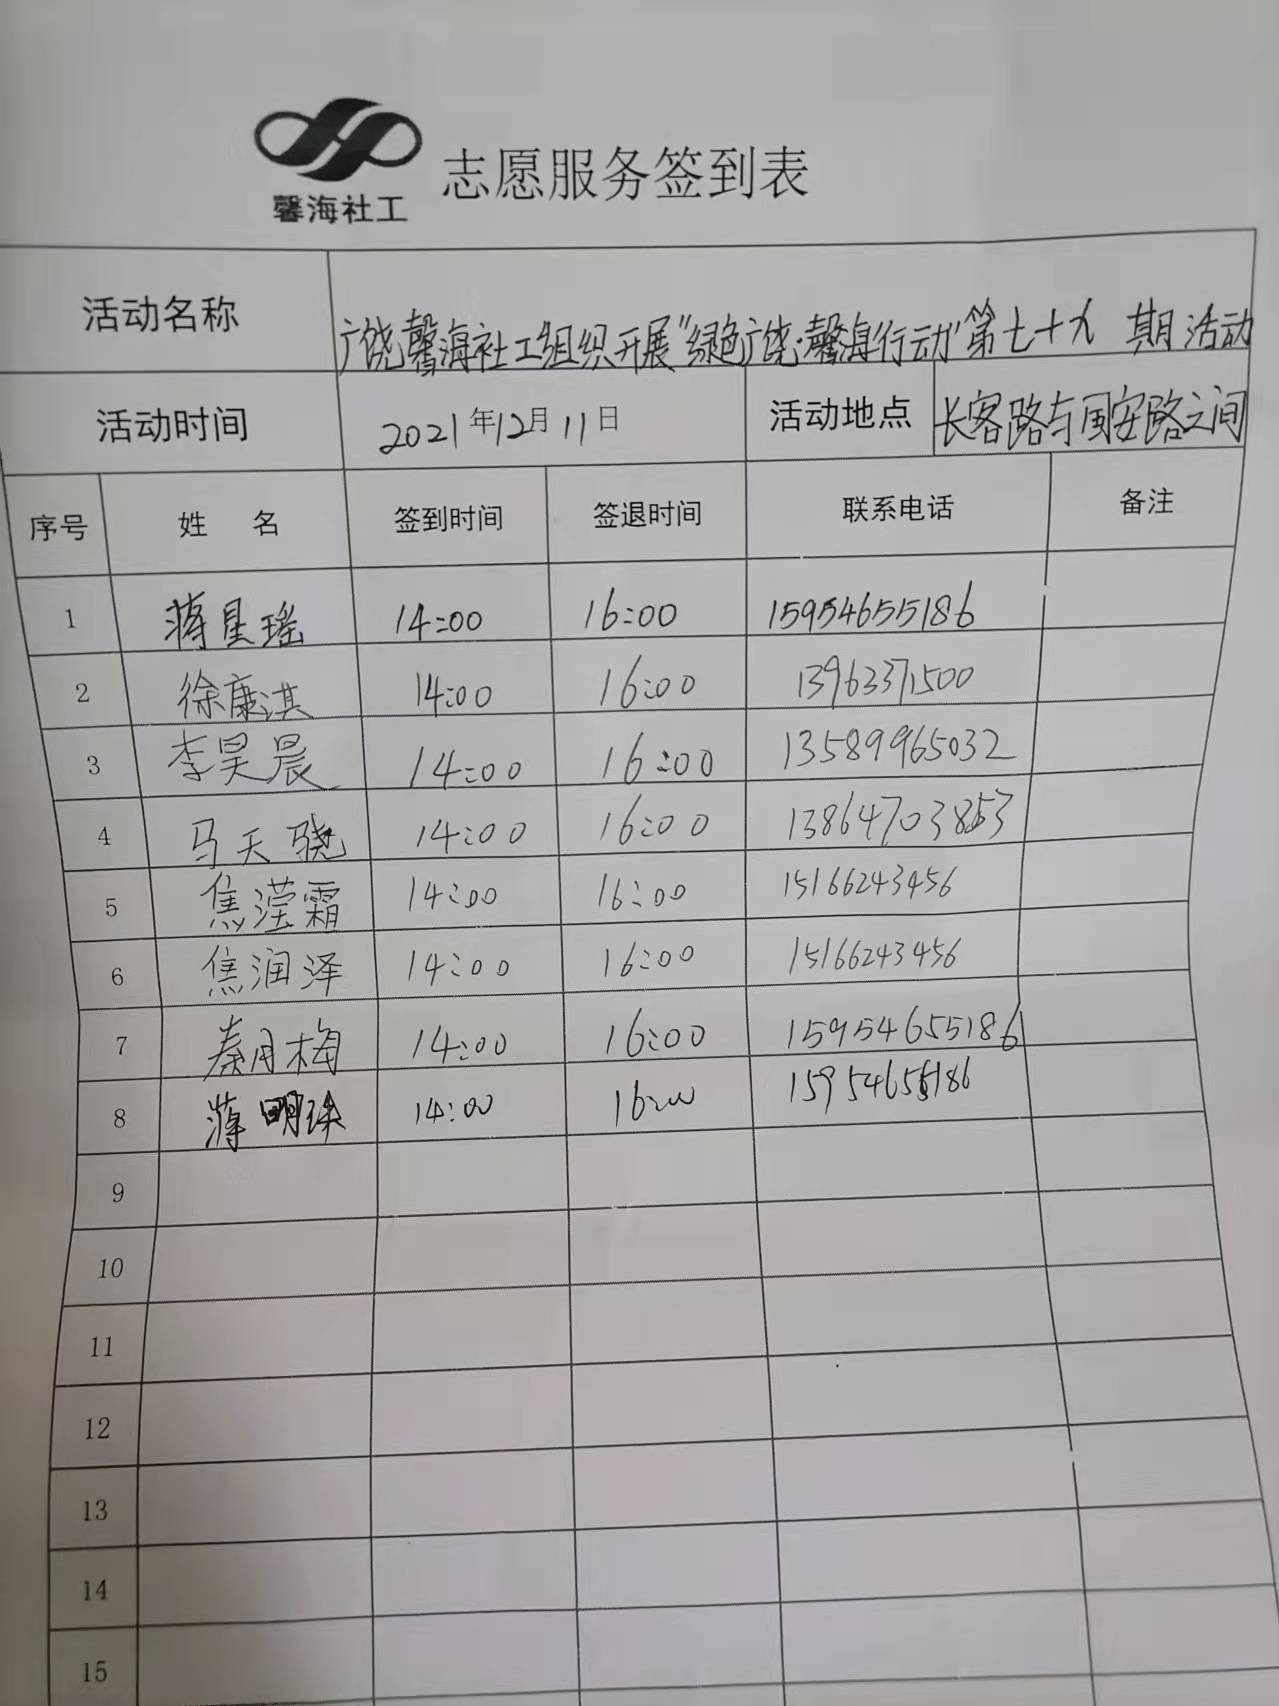 馨海社工
志愿服务签到表
活动名称 广饶馨海社工组织开展"绿色广饶·馨海行动"第七十九 期活动
活动时间 2021年12月11日 活动地点 长客路与国安路之间
序号 姓 名 签到时间 签退时间 联系电话 备注
1 蒋星瑶 14:00 16:00 15954655186
2 徐康淇 14:00 16:00 13963371500
3 李昊晨 14:00 16:00 13589965032
4 马天骁 14:00 16:00 13864703853
5 焦滢霜 14:00 16:00 15166243456
6 焦润泽 14:00 16:00 15166243456
7 秦月梅 14:00 16:00 15954655186
8 蒋明 14:00 16:00 15954655186
9
10
11
12
13
14
15